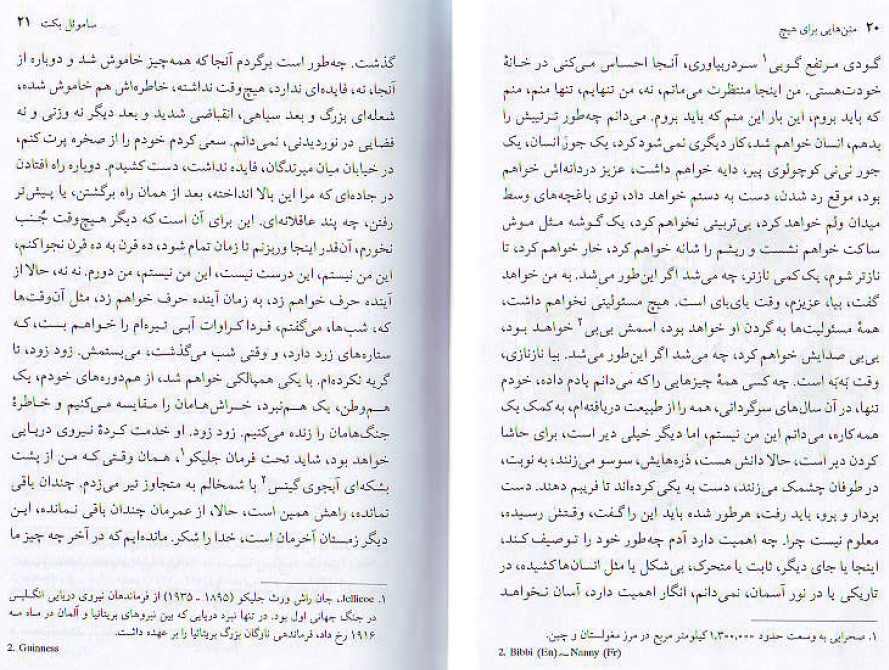 ۲۰ متن‌هایی برای هیچ
گودی مرتفع گوبی۱ سردربیاوری، آنجا احساس می‌کنی در خانهٔ
خودت‌هستی. من اینجا منتظرت می‌مانم، نه، من تنهایم، تنها منم، منم
که باید بروم، این بار این منم که باید بروم. می‌دانم چه‌طور ترتیبش را
بدهم، انسان خواهم شد، کار دیگری نمی‌شود کرد، یک جور انسان، یک
جور نی‌نی کوچولوی پیر، دایه خواهم داشت، عزیز دردانه‌اش خواهم
بود، موقع رد شدن، دست به دستم خواهد داد، توی باغچه‌های وسط
میدان ولم خواهد کرد، بی‌تربیتی نخواهم کرد، یک گوشه مثل موش
ساکت خواهم نشست و ریشم را شانه خواهم کرد، خار خواهم کرد، تا
نازتر شوم، یک کمی نازتر، چه می‌شد اگر این‌طور می‌شد. به من خواهد
گفت، بیا، عزیزم، وقت بای‌بای است. هیچ مسئولیتی نخواهم داشت،
همهٔ مسئولیت‌ها به گردن او خواهد بود، اسمش بی‌بی۲ خواهد بود،
بی‌بی صدایش خواهم کرد، چه می‌شد اگر این‌طور می‌شد. بیا نازنازی،
وقت به‌به است. چه کسی همهٔ چیزهایی را که می‌دانم یادم داده، خودم
تنها، در آن سال‌های سرگردانی، همه را از طبیعت دریافته‌ام، به کمک یک
همه‌کاره، می‌دانم این من نیستم، اما دیگر خیلی دیر است، برای حاشا
کردن دیر است، حالا دانش هست، ذره‌هایش، سوسو می‌زنند، به نوبت،
در طوفان چشمک می‌زنند، دست به یکی کرده‌اند تا فریبم دهند. دست
بردار و برو، باید رفت، هرطور شده باید این را گفت، وقتش رسیده،
معلوم نیست چرا. چه اهمیت دارد آدم چه‌طور خود را توصیف کند،
اینجا یا جای دیگر، ثابت یا متحرک، بی‌شکل یا مثل انسان‌ها کشیده، در
تاریکی یا در نور آسمان، نمی‌دانم، انگار اهمیت دارد، آسان نخواهد
۱. صحرایی به وسعت حدود ۱,۳۰۰,۰۰۰ کیلومتر مربع در مرز مغولستان و چین.
2. Bibbi (En) ~ Nanny (Fr)
ساموئل بکت ۲۱
گذشت. چه‌طور است برگردم آنجا که همه‌چیز خاموش شد و دوباره از
آنجا، نه، فایده‌ای ندارد، هیچ‌وقت نداشته، خاطره‌اش هم خاموش شده،
شعله‌ای بزرگ و بعد سیاهی، انقباضی شدید و بعد دیگر نه وزنی و نه
فضایی در نوردیدنی، نمی‌دانم. سعی کردم خودم را از صخره پرت کنم،
در خیابان میان میرندگان، فایده نداشت، دست کشیدم. دوباره راه افتادن
در جاده‌ای که مرا این بالا انداخته، بعد از همان راه برگشتن، یا پیش‌تر
رفتن، چه پند عاقلانه‌ای. این برای آن است که دیگر هیچ‌وقت جُنب
نخورم، آن‌قدر اینجا وربزنم تا زمان تمام شود، ده قرن به ده قرن نجوا کنم،
این من نیستم، این درست نیست، این من نیستم، من دورم. نه نه، حالا از
آینده حرف خواهم زد، به زمان آینده حرف خواهم زد، مثل آن‌وقت‌ها
که، شب‌ها، می‌گفتم، فردا کراوات آبی تیره‌ام را خواهم بست، که
ستاره‌های زرد دارد، و وقتی شب می‌گذشت، می‌بستمش. زود زود، تا
گریه نکرده‌ام. با یکی همپالکی خواهم شد، از هم‌دوره‌های خودم، یک
هم‌وطن، یک هم‌نبرد، خراش‌هامان را مقایسه می‌کنیم و خاطرهٔ
جنگ‌هامان را زنده می‌کنیم. زود زود. او خدمت کردهٔ نیروی دریایی
خواهد بود، شاید تحت فرمان جلیکو۱، همان وقتی که من از پشت
بشکه‌ای آبجوی گینس۲ با شمخالم به متجاوز تیر می‌زدم. چندان باقی
نمانده، راهش همین است، حالا، از عمرمان چندان باقی نمانده، این
دیگر زمستان آخرمان است، خدا را شکر. مانده‌ایم که در آخر چه چیز ما
۱. Jellicoe، جان راش ورث جلیکو (۱۸۹۵ - ۱۹۳۵) از فرماندهان نیروی دریایی انگلیس
در جنگ جهانی اول بود. در تنها نبرد دریایی که بین نیروهای بریتانیا و آلمان در ماه مه
۱۹۱۶ رخ داد، فرماندهی ناوگان بزرگ بریتانیا را بر عهده داشت.
2. Guinness